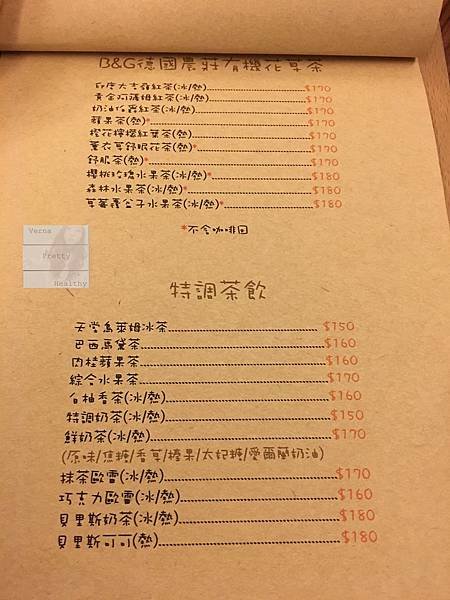 B&G德國農莊有機花草茶
印度大吉嶺紅茶(冰/熱)$170
黃金阿薩姆紅茶(冰/熱)$170
奶油伯爵紅茶(冰/熱)$170
蘋果茶(熱)*$170
櫻花檸檬紅葉茶(熱)$170
薰衣草舒眠花茶(熱)*$170
舒眠茶(熱)*$170
櫻桃玫瑰水果茶(冰/熱)*$180
森林水果茶(冰/熱)*$180
草莓覆盆子水果茶(冰/熱)*$180
*不含咖啡因
Verna
Pretty
Healthy
特調茶飲
天堂烏萊姆冰茶$150
巴西馬黛茶$160
肉桂蘋果茶$160
綜合水果茶$170
白柚香茶(冰/熱)$160
特調奶茶(冰/熱)$150
鮮奶茶(冰/熱)$170
(原味/焦糖/香草/榛果/太妃糖/愛爾蘭奶油)
抹茶歐蕾(冰/熱)$170
巧克力歐蕾(冰/熱)$160
貝里斯奶茶(冰/熱)$180
貝里斯可可(熱)$180